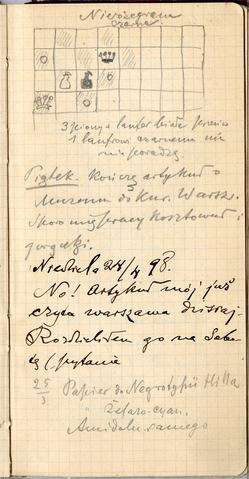 Nierozegrana
czarne.
3 piony i laufer białe przeciw
1 laufrowi czarnemu nie
nie poradzą.
Piątek. Kończę artykuł o
Muzeum do Kur. Warsz.
Sporo mię pracy kosztował i
Niedziela 24/4 98.
No! Artykuł mój już
czyta Warszawa dzisiaj.
Rozdzieliłem go na
i pytanie
25
3
Papier do Negrotypii Hilla
" Żelazo-cyan.
Amidolu samego